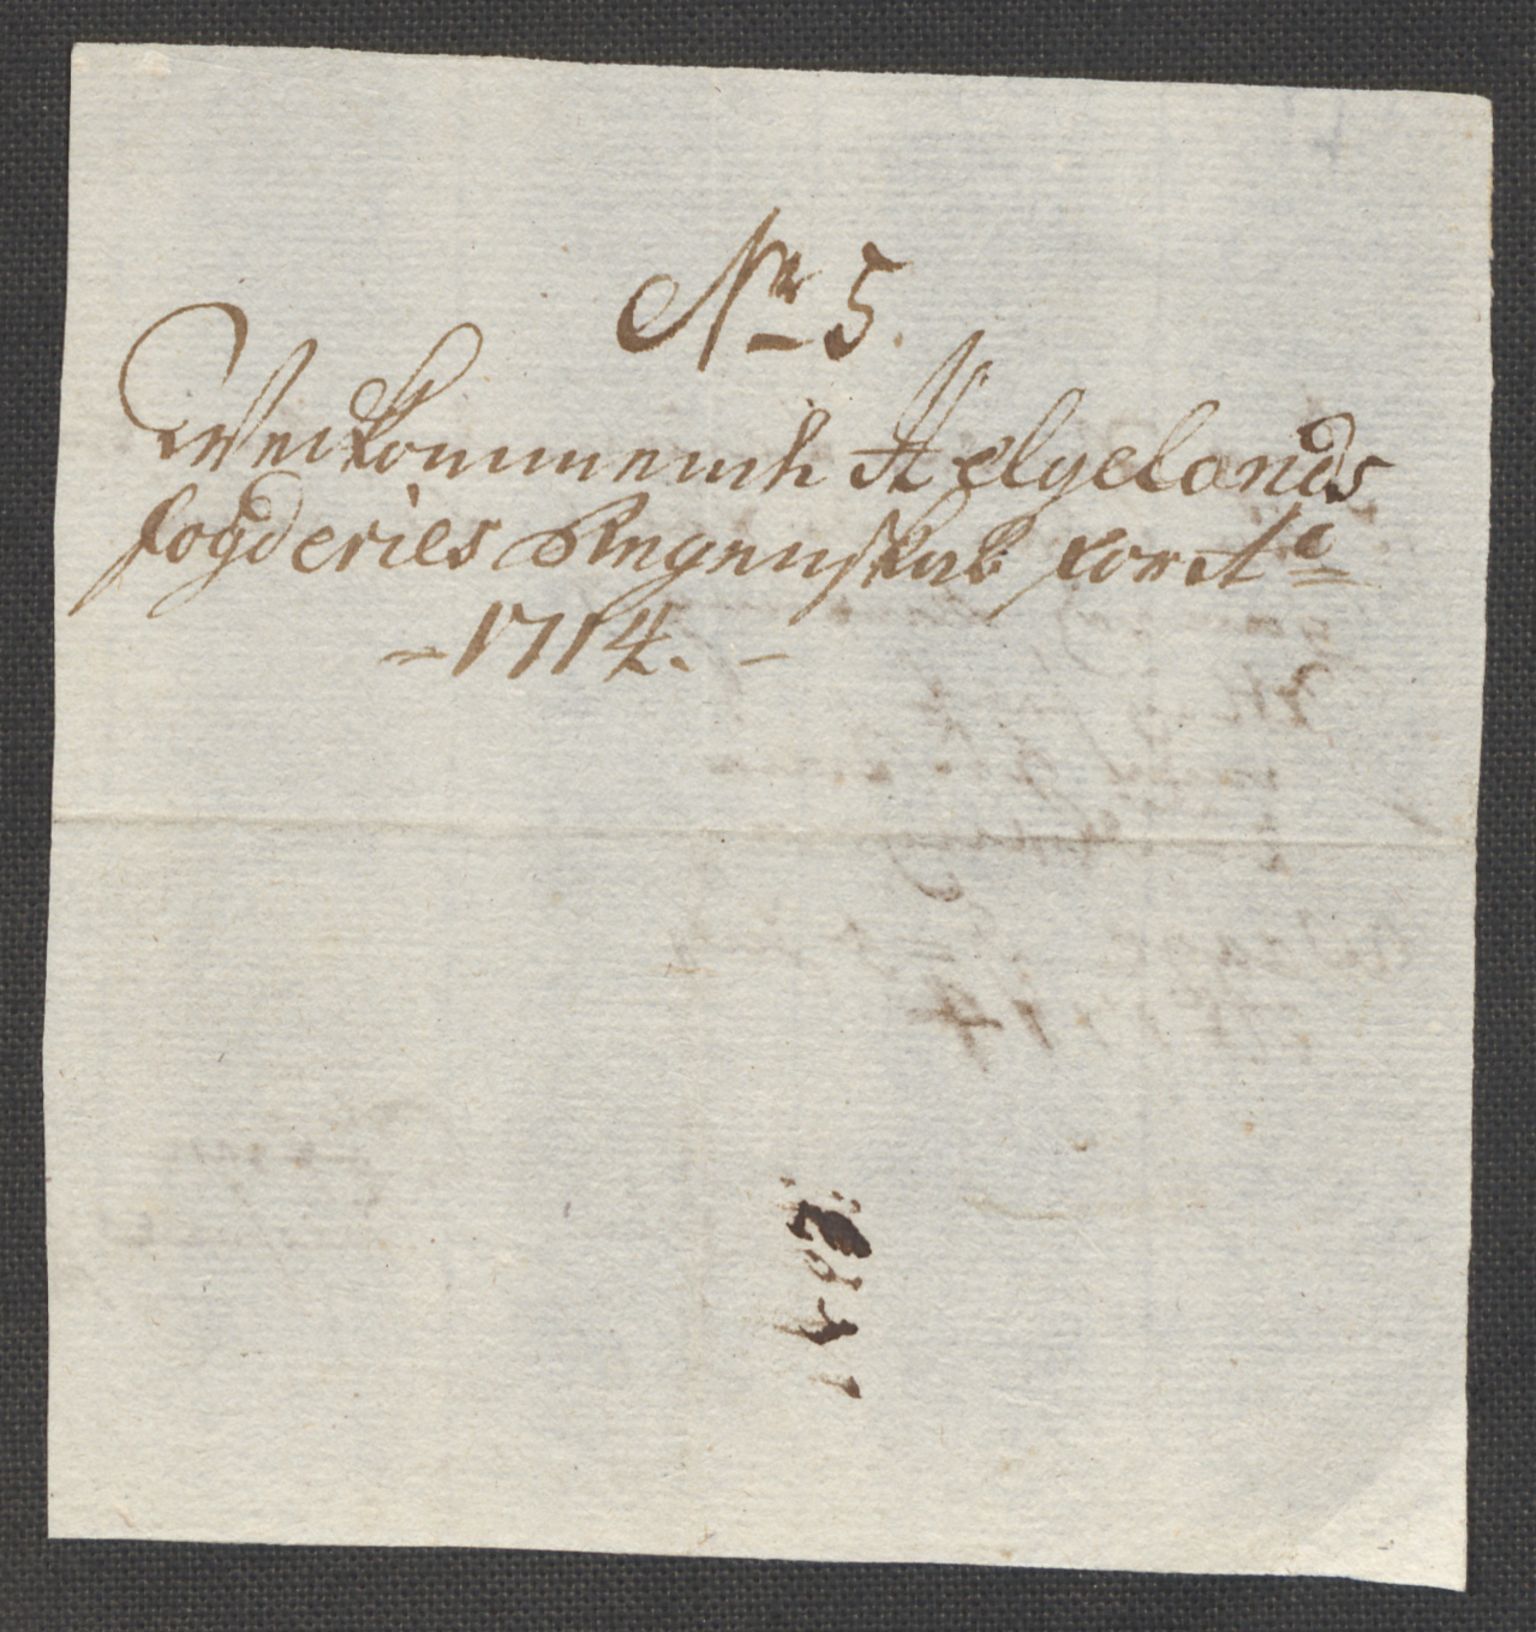 Nr 5.
Vedkommende Helgelands
fogderies Regenskab for Ao
- 1714. -